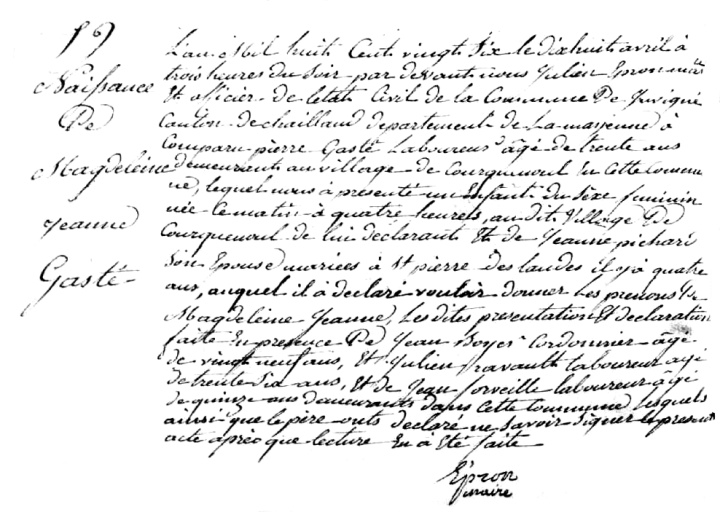 59
Naissance
De
Magdeleine
Jeanne
Gasté
L'an Mil huit Cent vingt Six le dixhuit avril à
trois heures du Soir par devant nous Julien Epron maire
Et officier de l'etat Civil de la Commune De Juvigné
Canton de chailland departement de La mayenne à
Comparu pierre Gasté Laboureur âgé de trente ans
demeurant au village de Courquenoul En Cette Commu
ne, lequel nous à presenté un Enfant du Sexe feminin
née Ce matin à quatre heures, au dit Village De
Courquenoul de lui declarant Et de Jeanne pichard
Son Epouse mariées à St pierre des landes il y à quatre
ans, auquel il à declaré vouloir donner Les prenoms De
Magdeleine Jeanne, Les dites presentation Et declaration
faite En presence De Jean Boyer Cordonnier âgé
de vingt neuf ans, Et Julien ravault laboureur agé
de trente Six ans, Et de Jean laboureur âgé
de quinze ans demeurants dans Cette Commune Lesquels
ainsi que le père onts declaré ne Savoir Signer le present
acte après que lecture En à Eté faite
Epron
maire